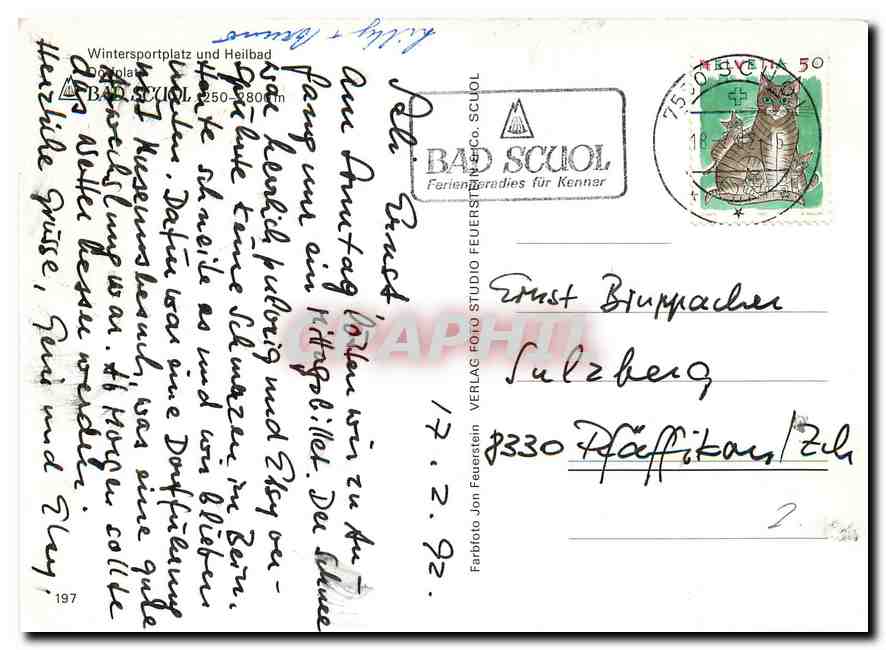 Wintersportplatz und Heilbad
Dorfplatz
BAD SCUOL 1250–2800 m
17.2.92.
Salü Ernst
Am Sonntag lösten wir zu An-
fang nur ein Mittagsbillet. Der Schnee
war herrlich pulvrig und Elsy ver-
spührte keine Schmerzen im Bein.
Heute schneite es und wir blieben
unten. Dafür war eine Dorfführung
mit Museumsbesuch, was eine gute
Abwechslung war. Ab Morgen sollte
das Wetter besser werden.
Herzliche Grüsse, Geni und Elsy.
Lilly + Bruno
197
Farbfoto Jon Feuerstein VERLAG FOTO STUDIO FEUERSTEIN & Co. SCUOL
BAD SCUOL
Ferienparadies für Kenner
7550 SCUOL
18
HELVETIA 50
Ernst Bruppacher
Sulzberg
8330 Pfäffikon/Zch
2.
CPAPHIL